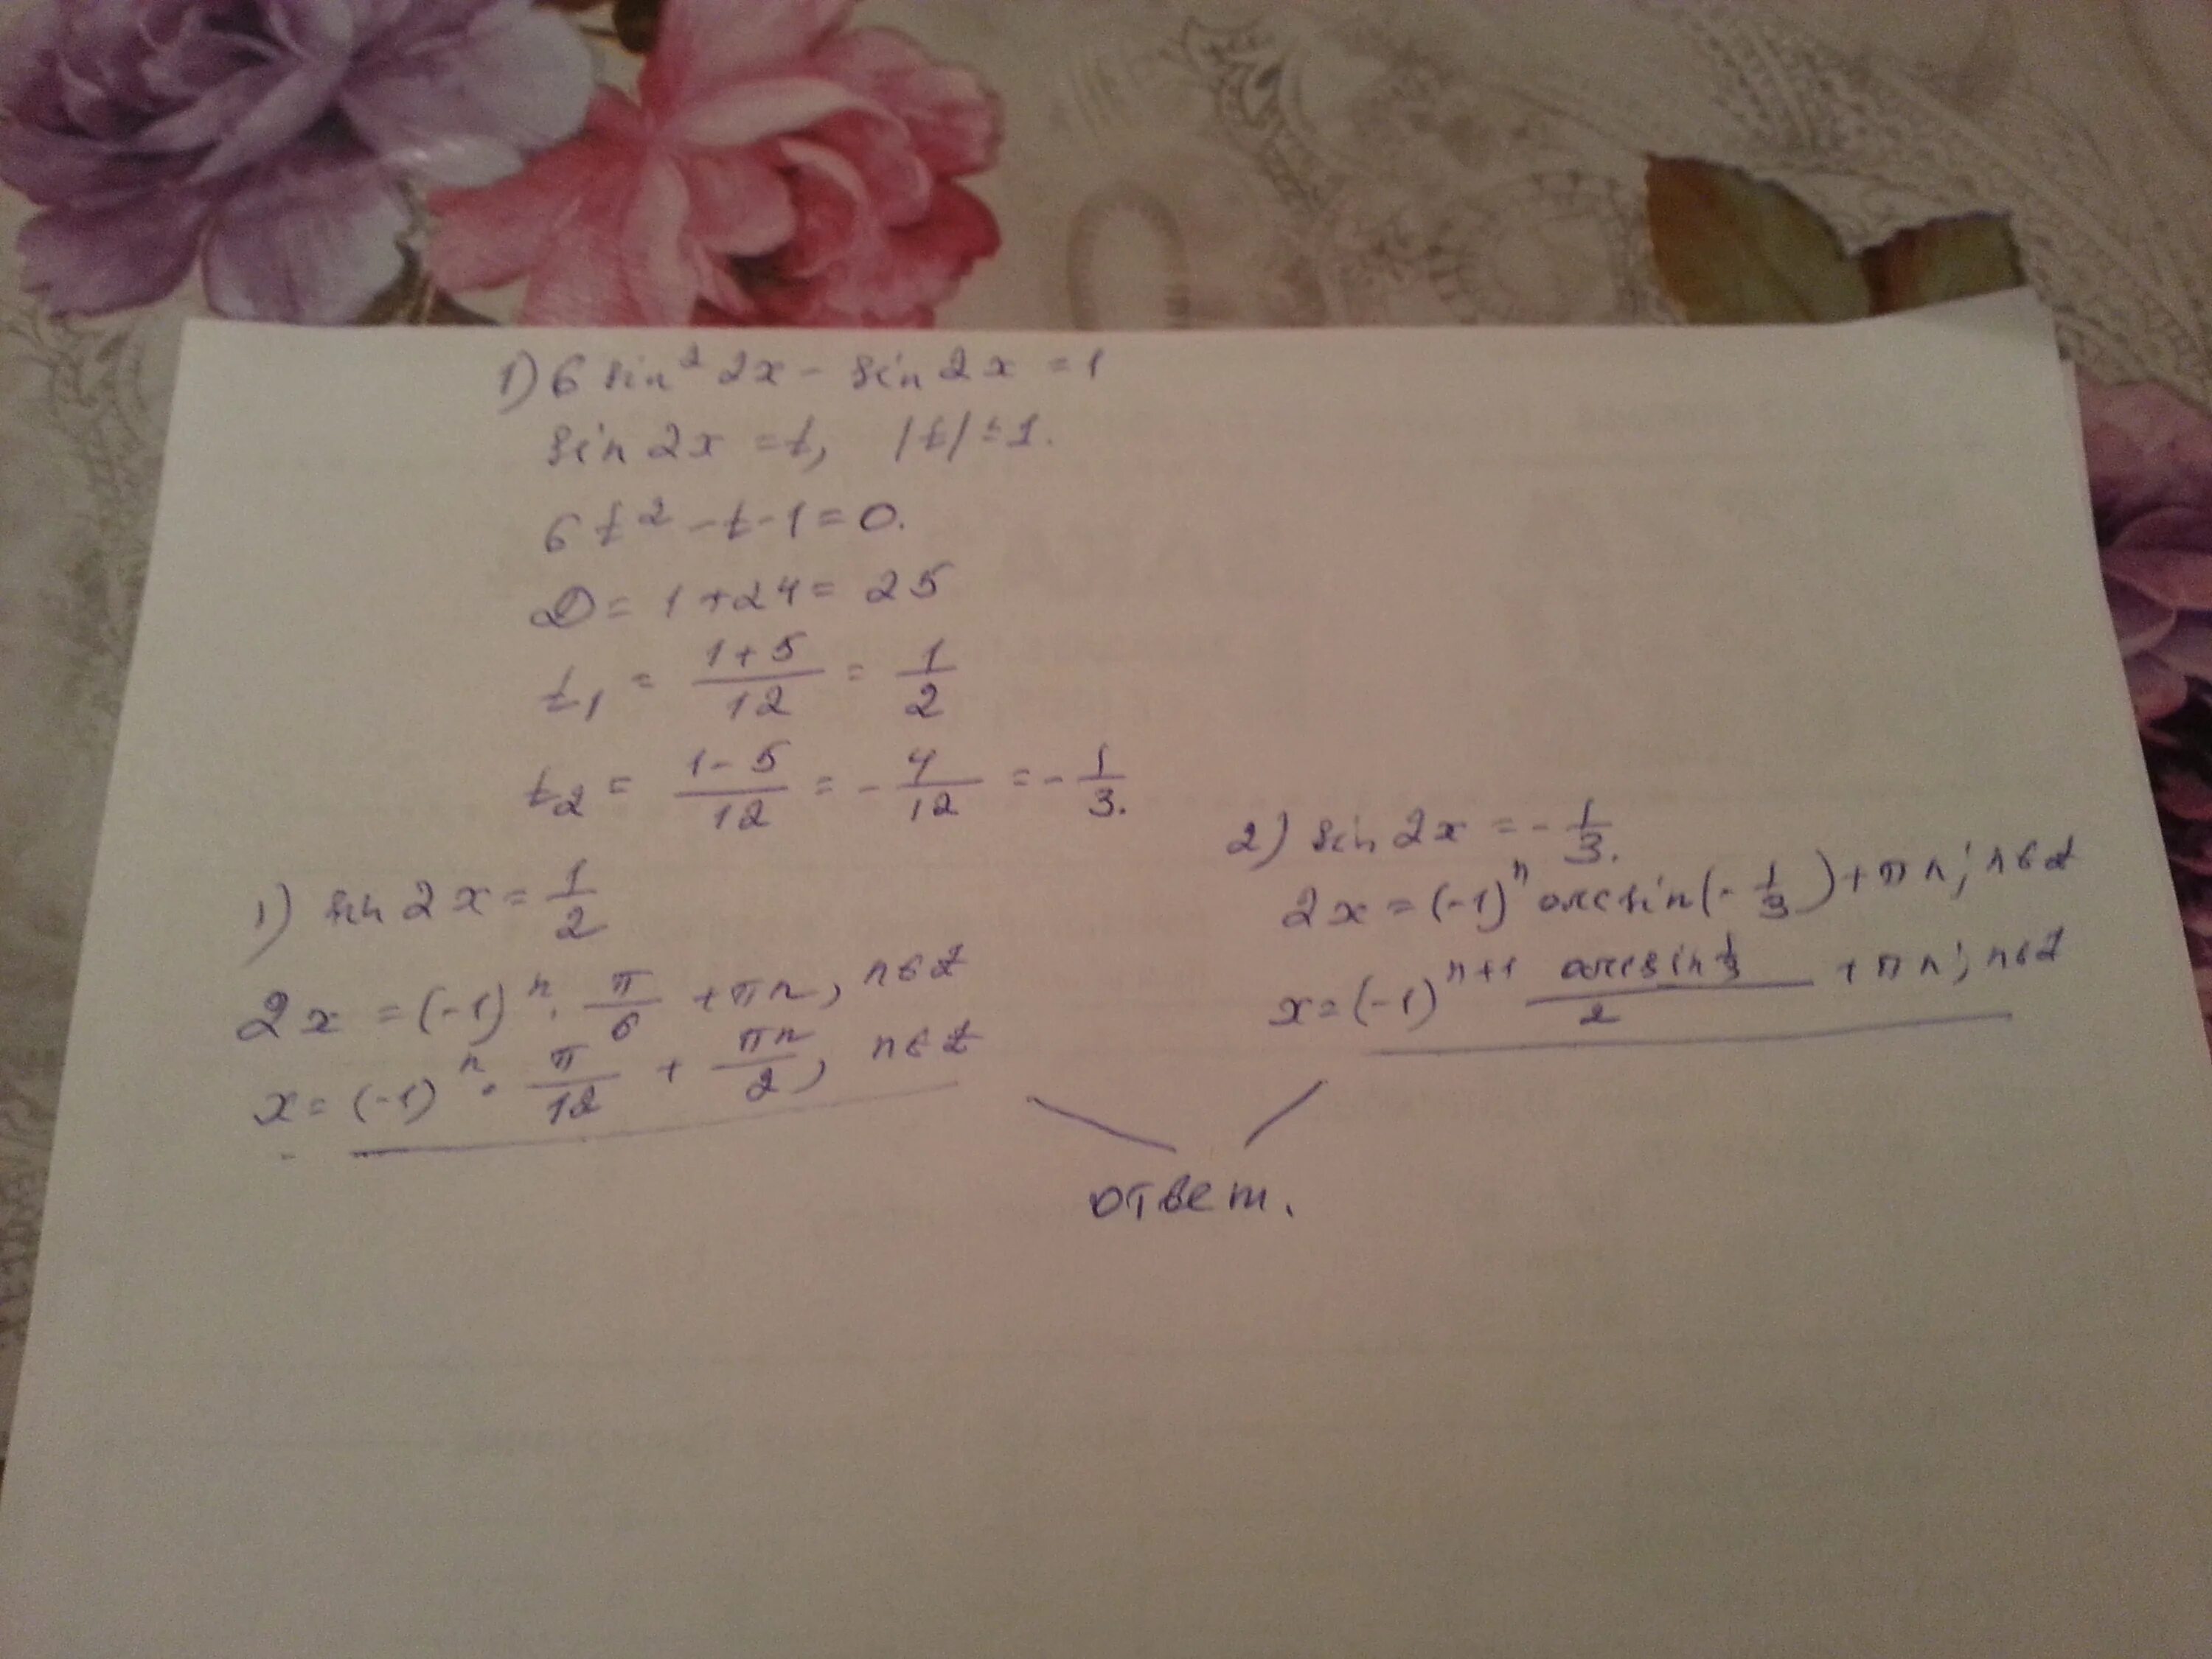 1) 6 sin² 2x - sin 2x = 1
sin 2x = t, |t| ≤ 1.
6t² - t - 1 = 0.
D = 1 + 24 = 25
t₁ = (1+5)/12 = 1/2
t₂ = (1-5)/12 = -4/12 = -1/3.
1) sin 2x = 1/2
2x = (-1)ⁿ · π/6 + πn, n∈Z
x = (-1)ⁿ · π/12 + πn/2, n∈Z
2) sin 2x = -1/3.
2x = (-1)ⁿ arcsin(-1/3) + πn; n∈Z
x = (-1)ⁿ⁺¹ (arcsin 1/3)/2 + πn; n∈Z
ответ.